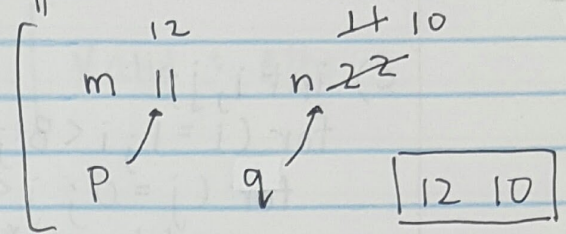 12 11 10
m 11 n 22
p q 12 10